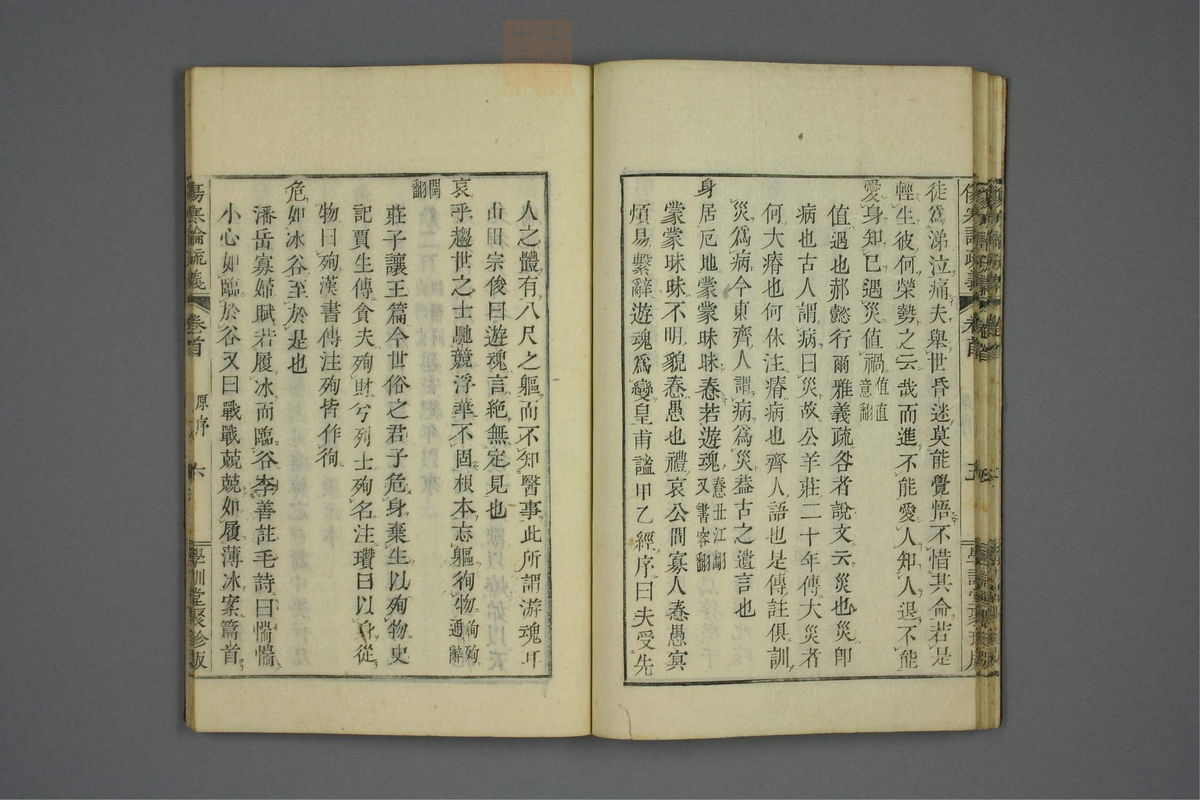 徒爲涕泣痛夫舉世昏迷莫能覺悟不惜其命若是
輕生彼何榮勢之云哉而進不能愛人知人退不能
愛身知己遇災值禍值直意翻
值遇也郝懿行爾雅義疏咎者說文云災也災卽
病也古人謂病曰災故公羊莊二十年傳大災者
何大瘠也何休注瘠病也齊人語也是傳註俱訓
災爲病今東齊人謂病爲災葢古之遺言也
身居厄地蒙蒙昧昧惷若遊魂惷丑江翻又書容翻
蒙蒙昧昧不明貌惷愚也禮哀公問寡人惷愚冥
煩易繫辭遊魂爲變皇甫謐甲乙經序曰夫受先
人之體有八尺之軀而不知醫事此所謂游魂耳
山田宗俊曰遊魂言絶無定見也
哀乎趨世之士馳競浮華不固根本志軀徇物徇殉通辭
閏翻
莊子讓王篇今世俗之君子危身棄生以殉物史
記賈生傳貪夫殉財兮列士殉名注瓚曰以身從
物曰殉漢書傳注殉皆作徇
危如冰谷至於是也
潘岳寡婦賦若履冰而臨谷李善註毛詩曰惴惴
小心如臨於谷又曰戰戰兢兢如履薄冰案篇首
傷寒論疏義
卷首
原序
六
學訓堂聚珍版